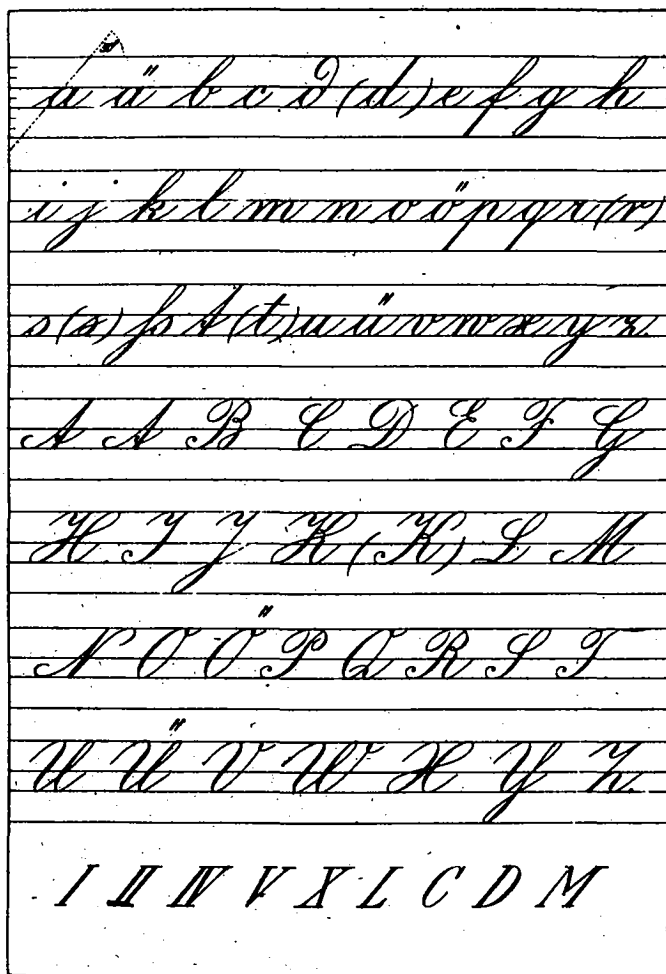 a ä b c d (d) e f g h
i j k l m n o ö p q r (r)
s (s) ſs t (t) u ü v w x y z
A A B C D E F G
H I J K (K) L M
N O Ö P Q R S T
U Ü V W X Y Z
I II IV V X L C D M